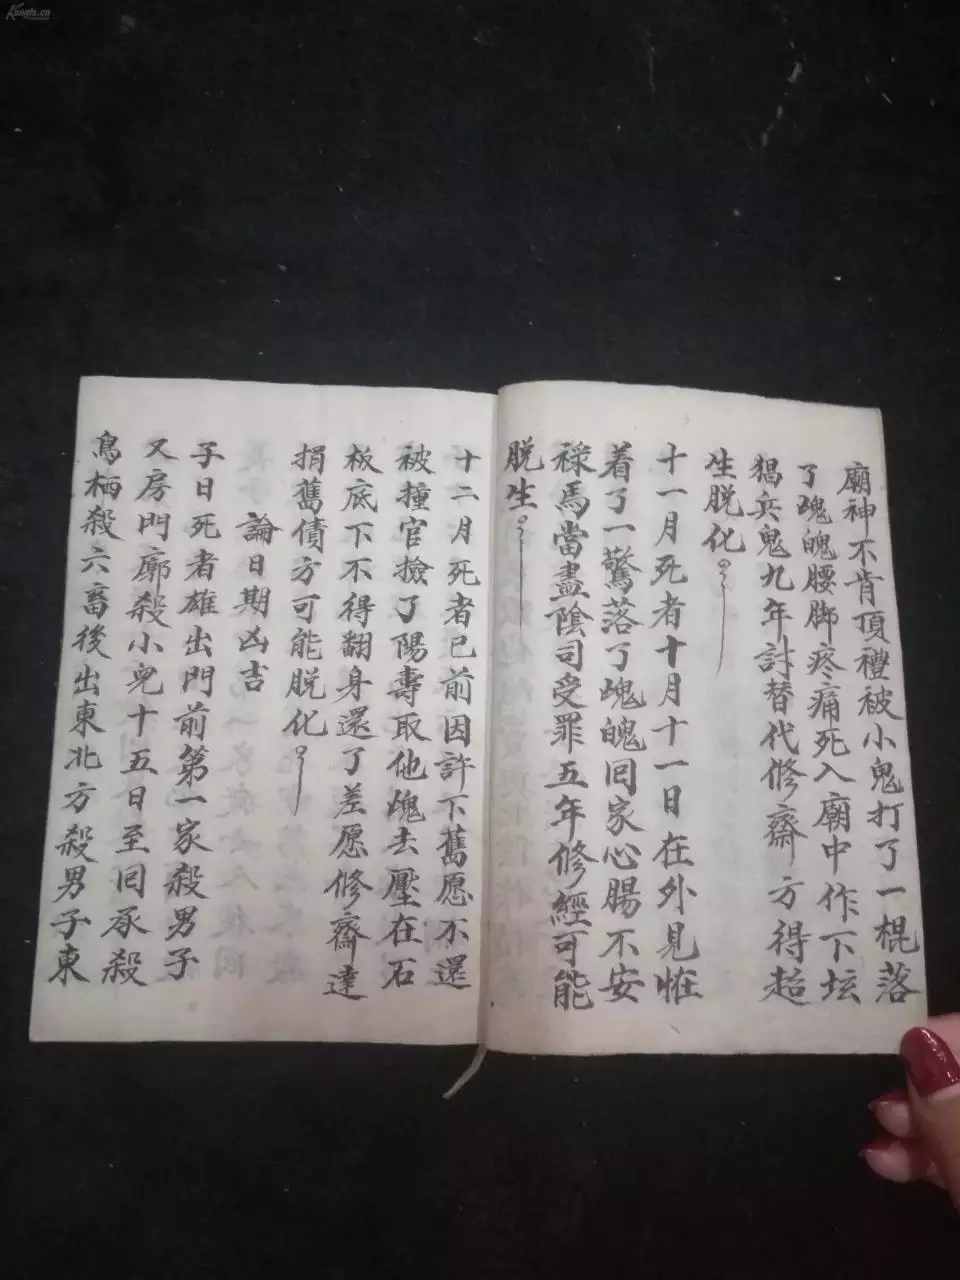 廟神不肯頂禮被小鬼打了一棍落
了魂魄腰脚疼痛死入廟中作下坛
猖兵鬼九年討替代修齋方得超
生脱化
十一月死者十月十一日在外見怪
着了一驚落了魂魄囘家心腸不安
禄馬當盡陰司受罪五年修經可能
脱生
十二月死者已前因許下舊愿不還
被撞官撿了陽壽取他魂去壓在石
板底下不得翻身還了差愿修齋達
捐舊債方可能脱化
論日期凶吉
子日死者雄出門前第一家殺男子
又房門廓殺小兒十五日至囘承殺
鳥栖殺六畜後出東北方殺男子東
Kongfz.cn